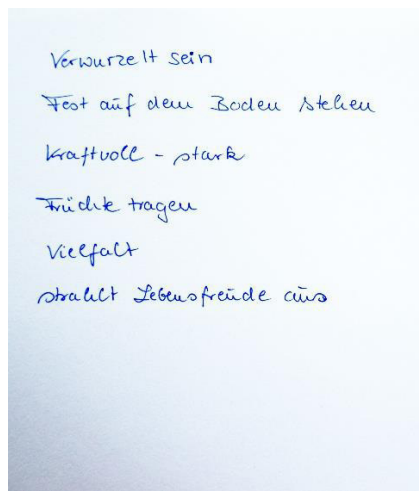 Verwurzelt sein
Fest auf dem Boden stehen
Kraftvoll - stark
Früchte tragen
Vielfalt
strahlt Lebensfreude aus